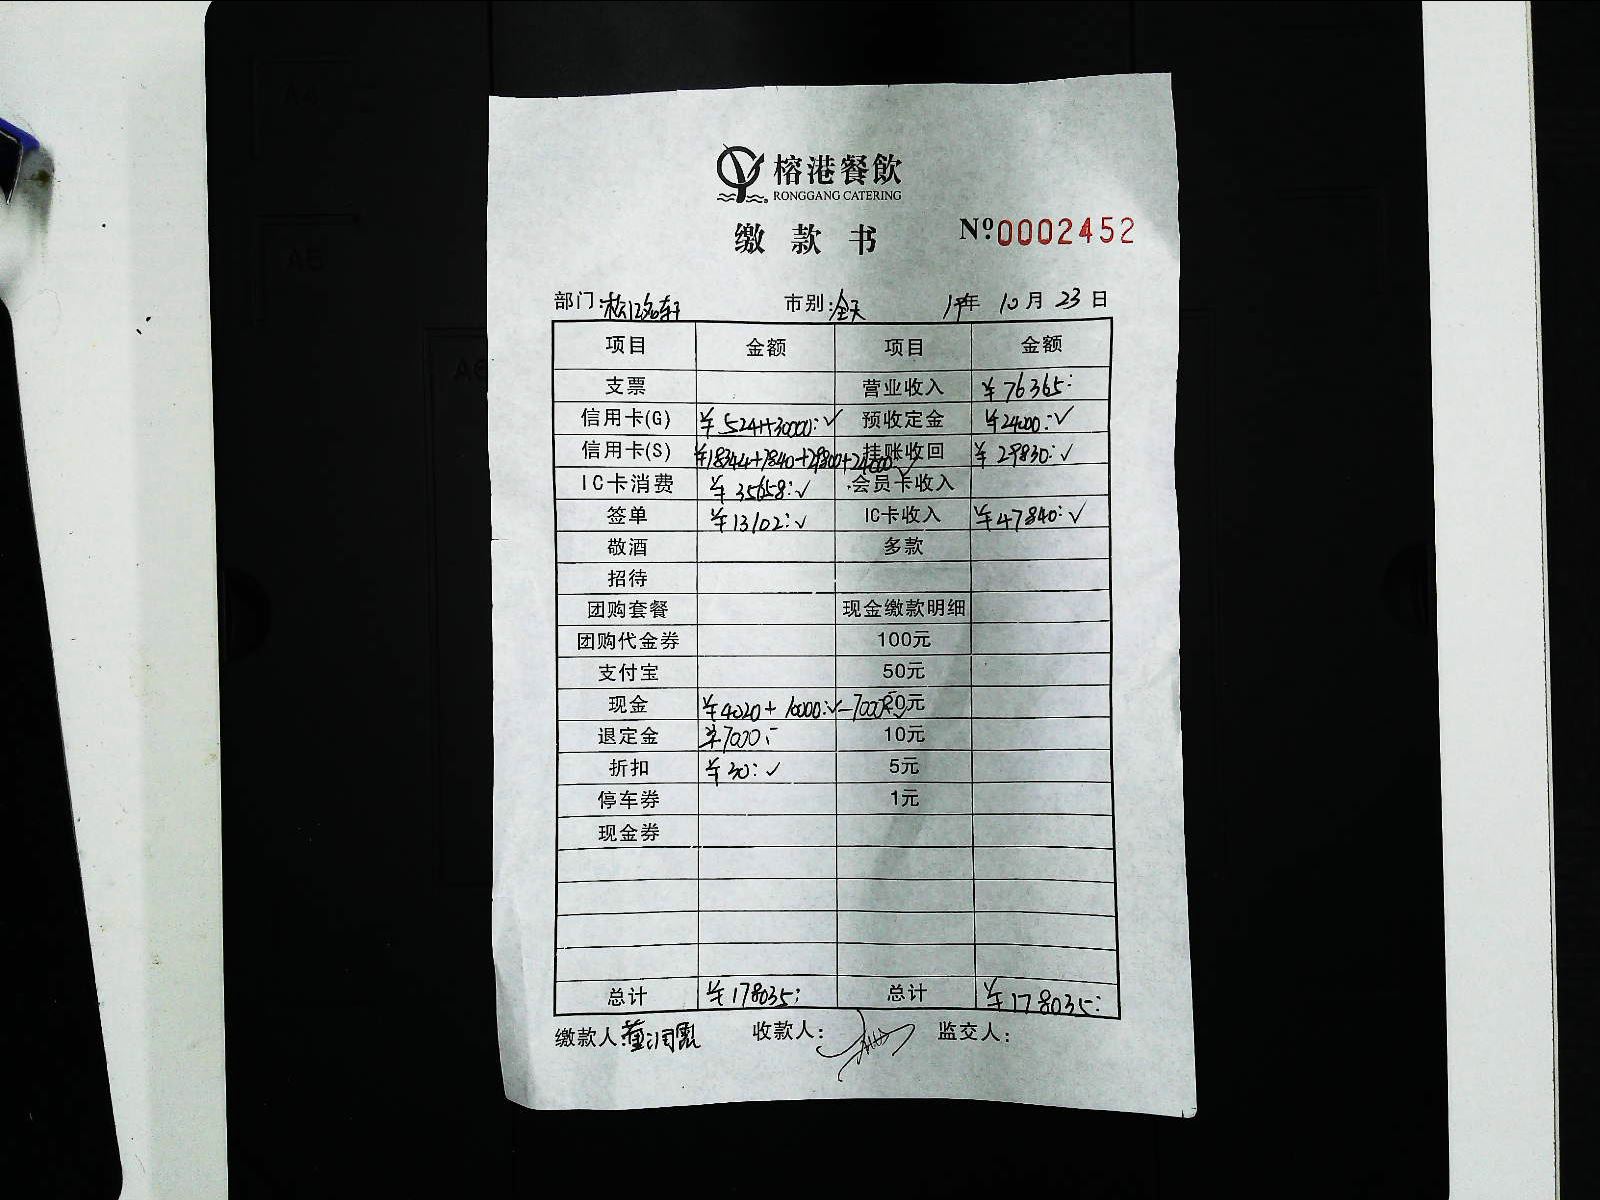 榕港餐飲
RONGGANG CATERING
缴款书 Nº0002452
部门: 市别:全天 19年 10月 23日
项目 金额 项目 金额
支票 营业收入 ¥76365:
信用卡(G) ¥5241+30000:✓ 预收定金 ¥24000:✓
信用卡(S) ¥18344+7840+29800+24000✓ 挂账收回 ¥29830:✓
IC卡消费 ¥35658:✓ 会员卡收入
签单 ¥13102:✓ IC卡收入 ¥47840:✓
敬酒 多款
招待
团购套餐 现金缴款明细
团购代金券 100元
支付宝 50元
现金 ¥4020+10000:✓-7000✓ 20元
退定金 ¥7000:- 10元
折扣 ¥30:✓ 5元
停车券 1元
现金券
总计 ¥178035: 总计 ¥178035:
缴款人: 收款人: 监交人: